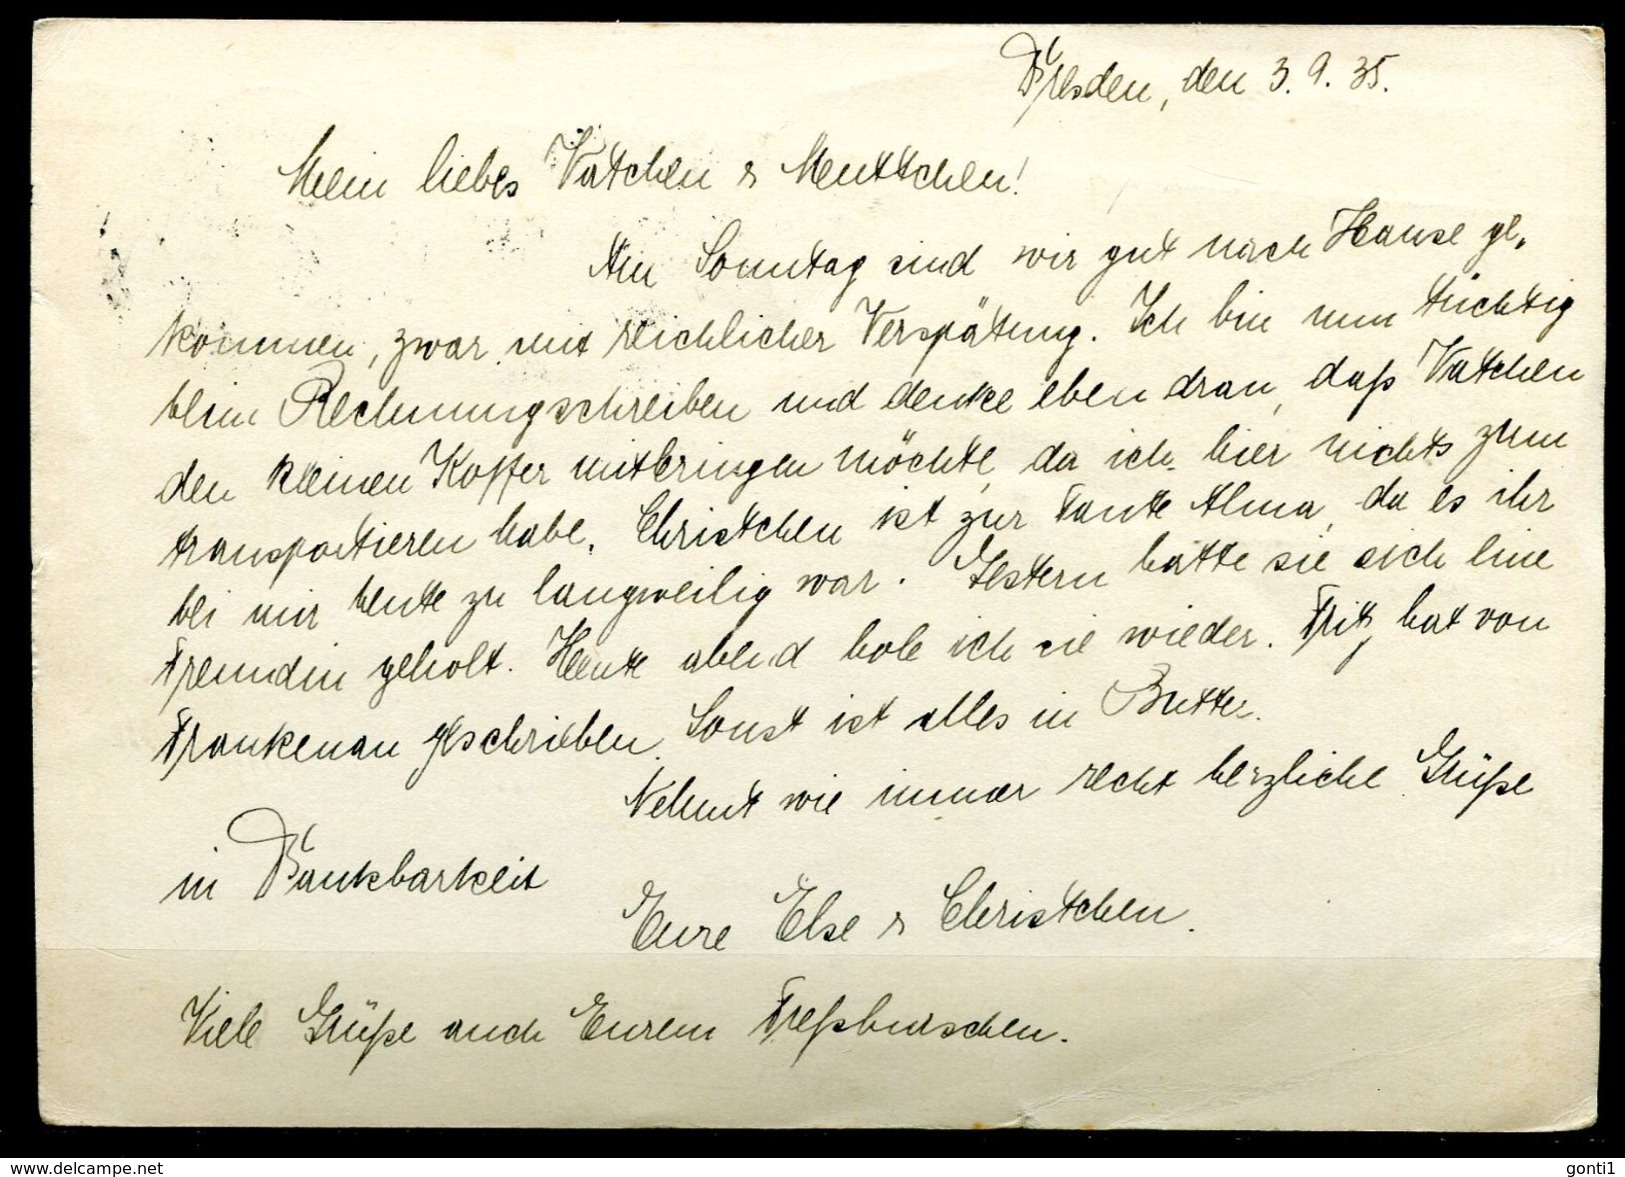 Dresden, den 3.9.35.
Mein liebes Vatchen & Muttchen!
Am Sonntag sind wir gut nach Hause ge-
kommen, zwar mit reichlicher Verspätung. Ich bin nun tüchtig
beim Rechnungschreiben und denke eben dran, daß Vatchen
den kleinen Koffer mitbringen möchte, da ich hier nichts zum
transportieren habe. Christchen ist zur Tante Alma, da es ihr
bei mir heute zu langweilig war. Gestern hatte sie sich eine
Freundin geholt. Heute abend hole ich sie wieder. Fritz hat von
Frankenau geschrieben. Sonst ist alles in Butter.
Nehmt wie immer recht herzliche Grüße
in Dankbarkeit
Eure Else & Christchen.
Viele Grüße auch Eurem Freßburschen.
www.delcampe.net
gonti1